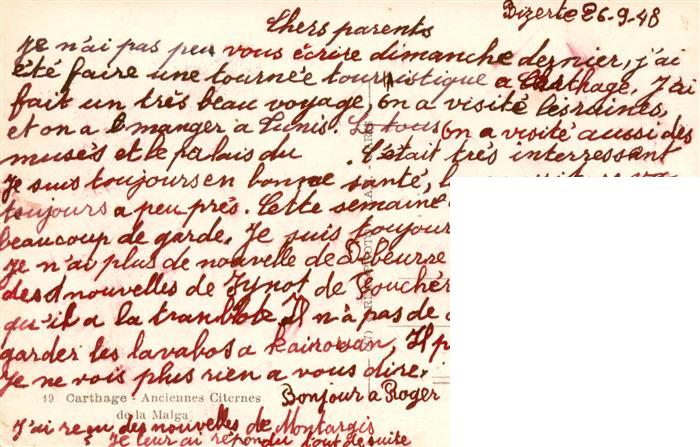 Bizerte 26-9-48
Chers parents
Je n'ai pas peu vous écrire dimanche dernier, j'ai
été faire une tournée touristique a Carthage, J'ai
fait un très beau voyage, on a visité les ruines,
et on a manger a Tunis. on a visité aussi des
musés et le palais du C'était très interressant
Je suis toujours en bonne santé,
toujours a peu prés. Cette semaine
beaucoup de garde, Je suis toujour
Je n'ai plus de nouvelle de Debeurse
des nouvelles de Tynot de Fouchér
qu'il a la tranblote Il n'a pas de
garder les lavabos a Kairouan, Il p
Je ne vois plus rien a vous dire.
Bonjour a Roger
19 Carthage - Anciennes Citernes
de la Malga
J'ai reçu des nouvelles de Montargis
Je leur ai répondu tout de suite